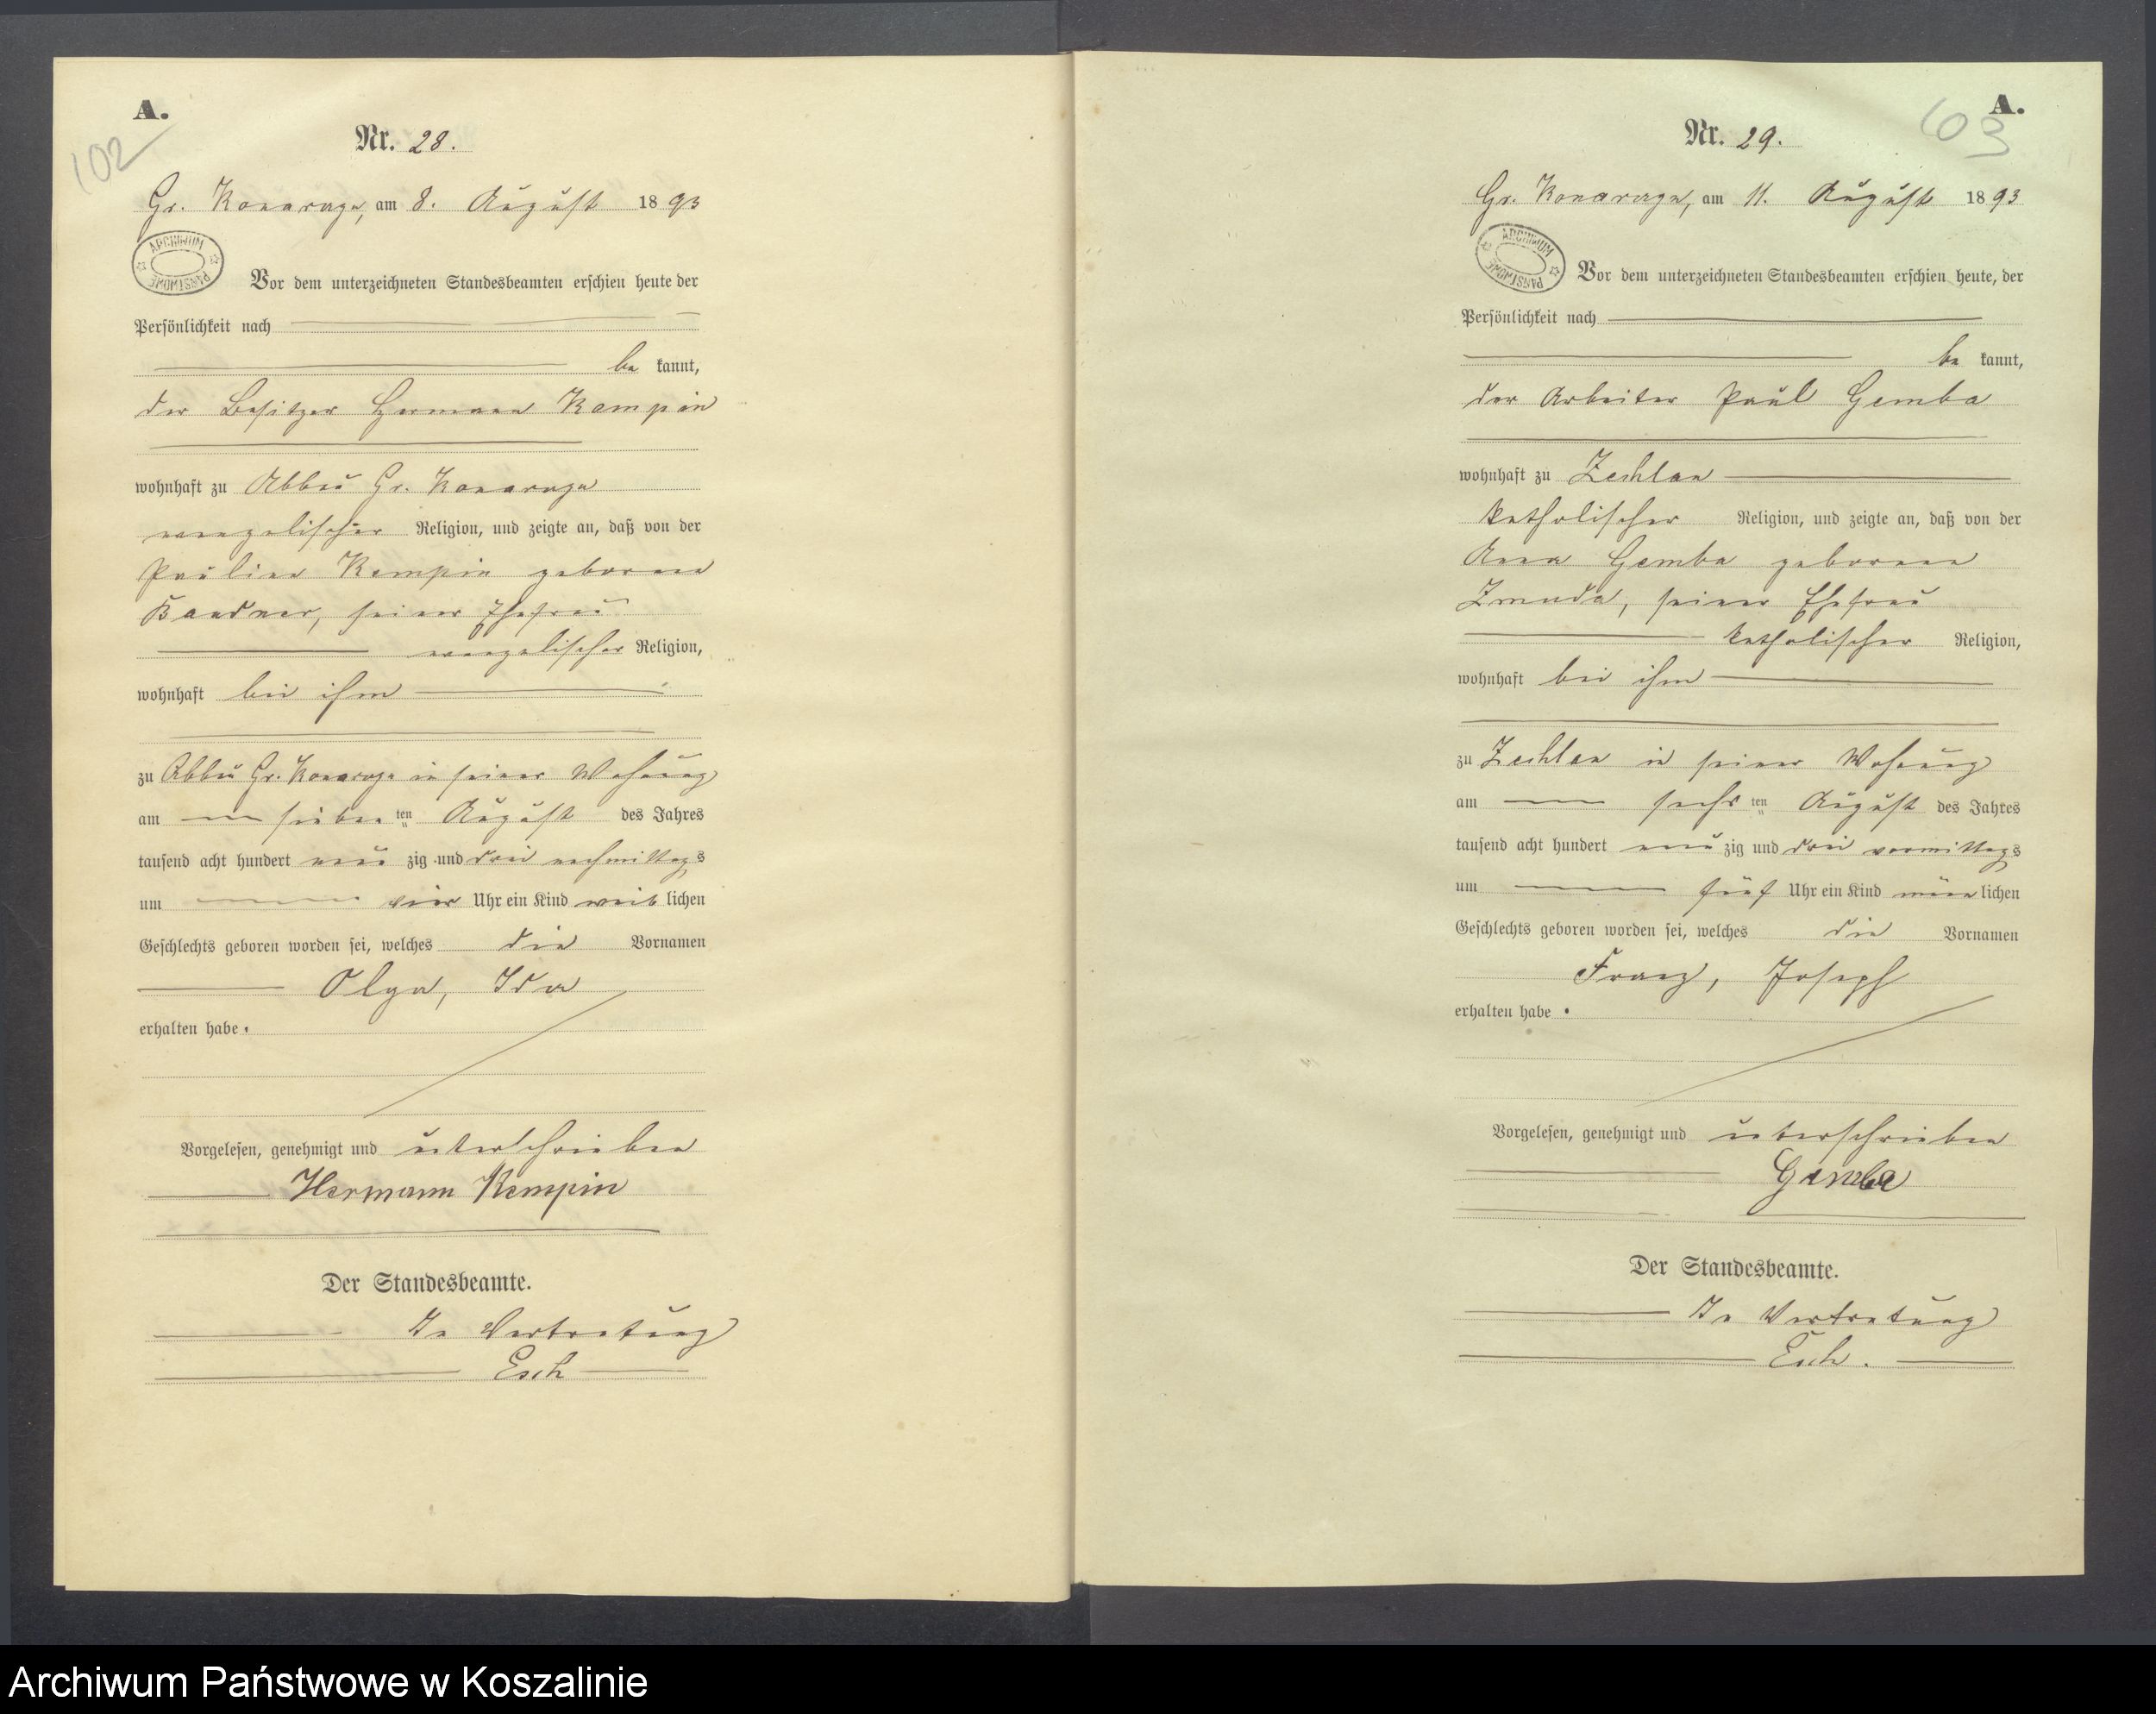 A.
102
Nr. 28.
Gr. Konarczyn, am 8. August 1893
ARCHIWUM PAŃSTWOWE
Vor dem unterzeichneten Standesbeamten erschien heute der
Persönlichkeit nach
be kannt,
der Besitzer Hermann Kempin
wohnhaft zu Abbau Gr.
evangelischer Religion, und zeigte an, daß von der
Pauline Kempin geborene
seiner Ehefrau
evangelischer Religion,
wohnhaft bei ihm
zu Abbau Gr. in seiner Wohnung
am sieben ten August des Jahres
tausend acht hundert neun zig und drei nachmittags
um vier Uhr ein Kind weib lichen
Geschlechts geboren worden sei, welches die Vornamen
Olga, Ida
erhalten habe.
Vorgelesen, genehmigt und unterschrieben
Hermann Kempin
Der Standesbeamte.
In Vertretung
Esch
A.
103
Nr. 29.
Gr. Konarczyn, am 11. August 1893
ARCHIWUM PAŃSTWOWE
Vor dem unterzeichneten Standesbeamten erschien heute, der
Persönlichkeit nach
be kannt,
der Arbeiter Paul Gemba
wohnhaft zu Zechlau
katholischer Religion, und zeigte an, daß von der
Anna Gemba geborene
Zmuda, seiner Ehefrau
katholischer Religion,
wohnhaft bei ihm
zu Zechlau in seiner Wohnung
am sechs ten August des Jahres
tausend acht hundert neun zig und drei vormittags
um fünf Uhr ein Kind männ lichen
Geschlechts geboren worden sei, welches die Vornamen
Franz, Joseph
erhalten habe.
Vorgelesen, genehmigt und unterschrieben
Gemba
Der Standesbeamte.
In Vertretung
Esch.
Archiwum Państwowe w Koszalinie